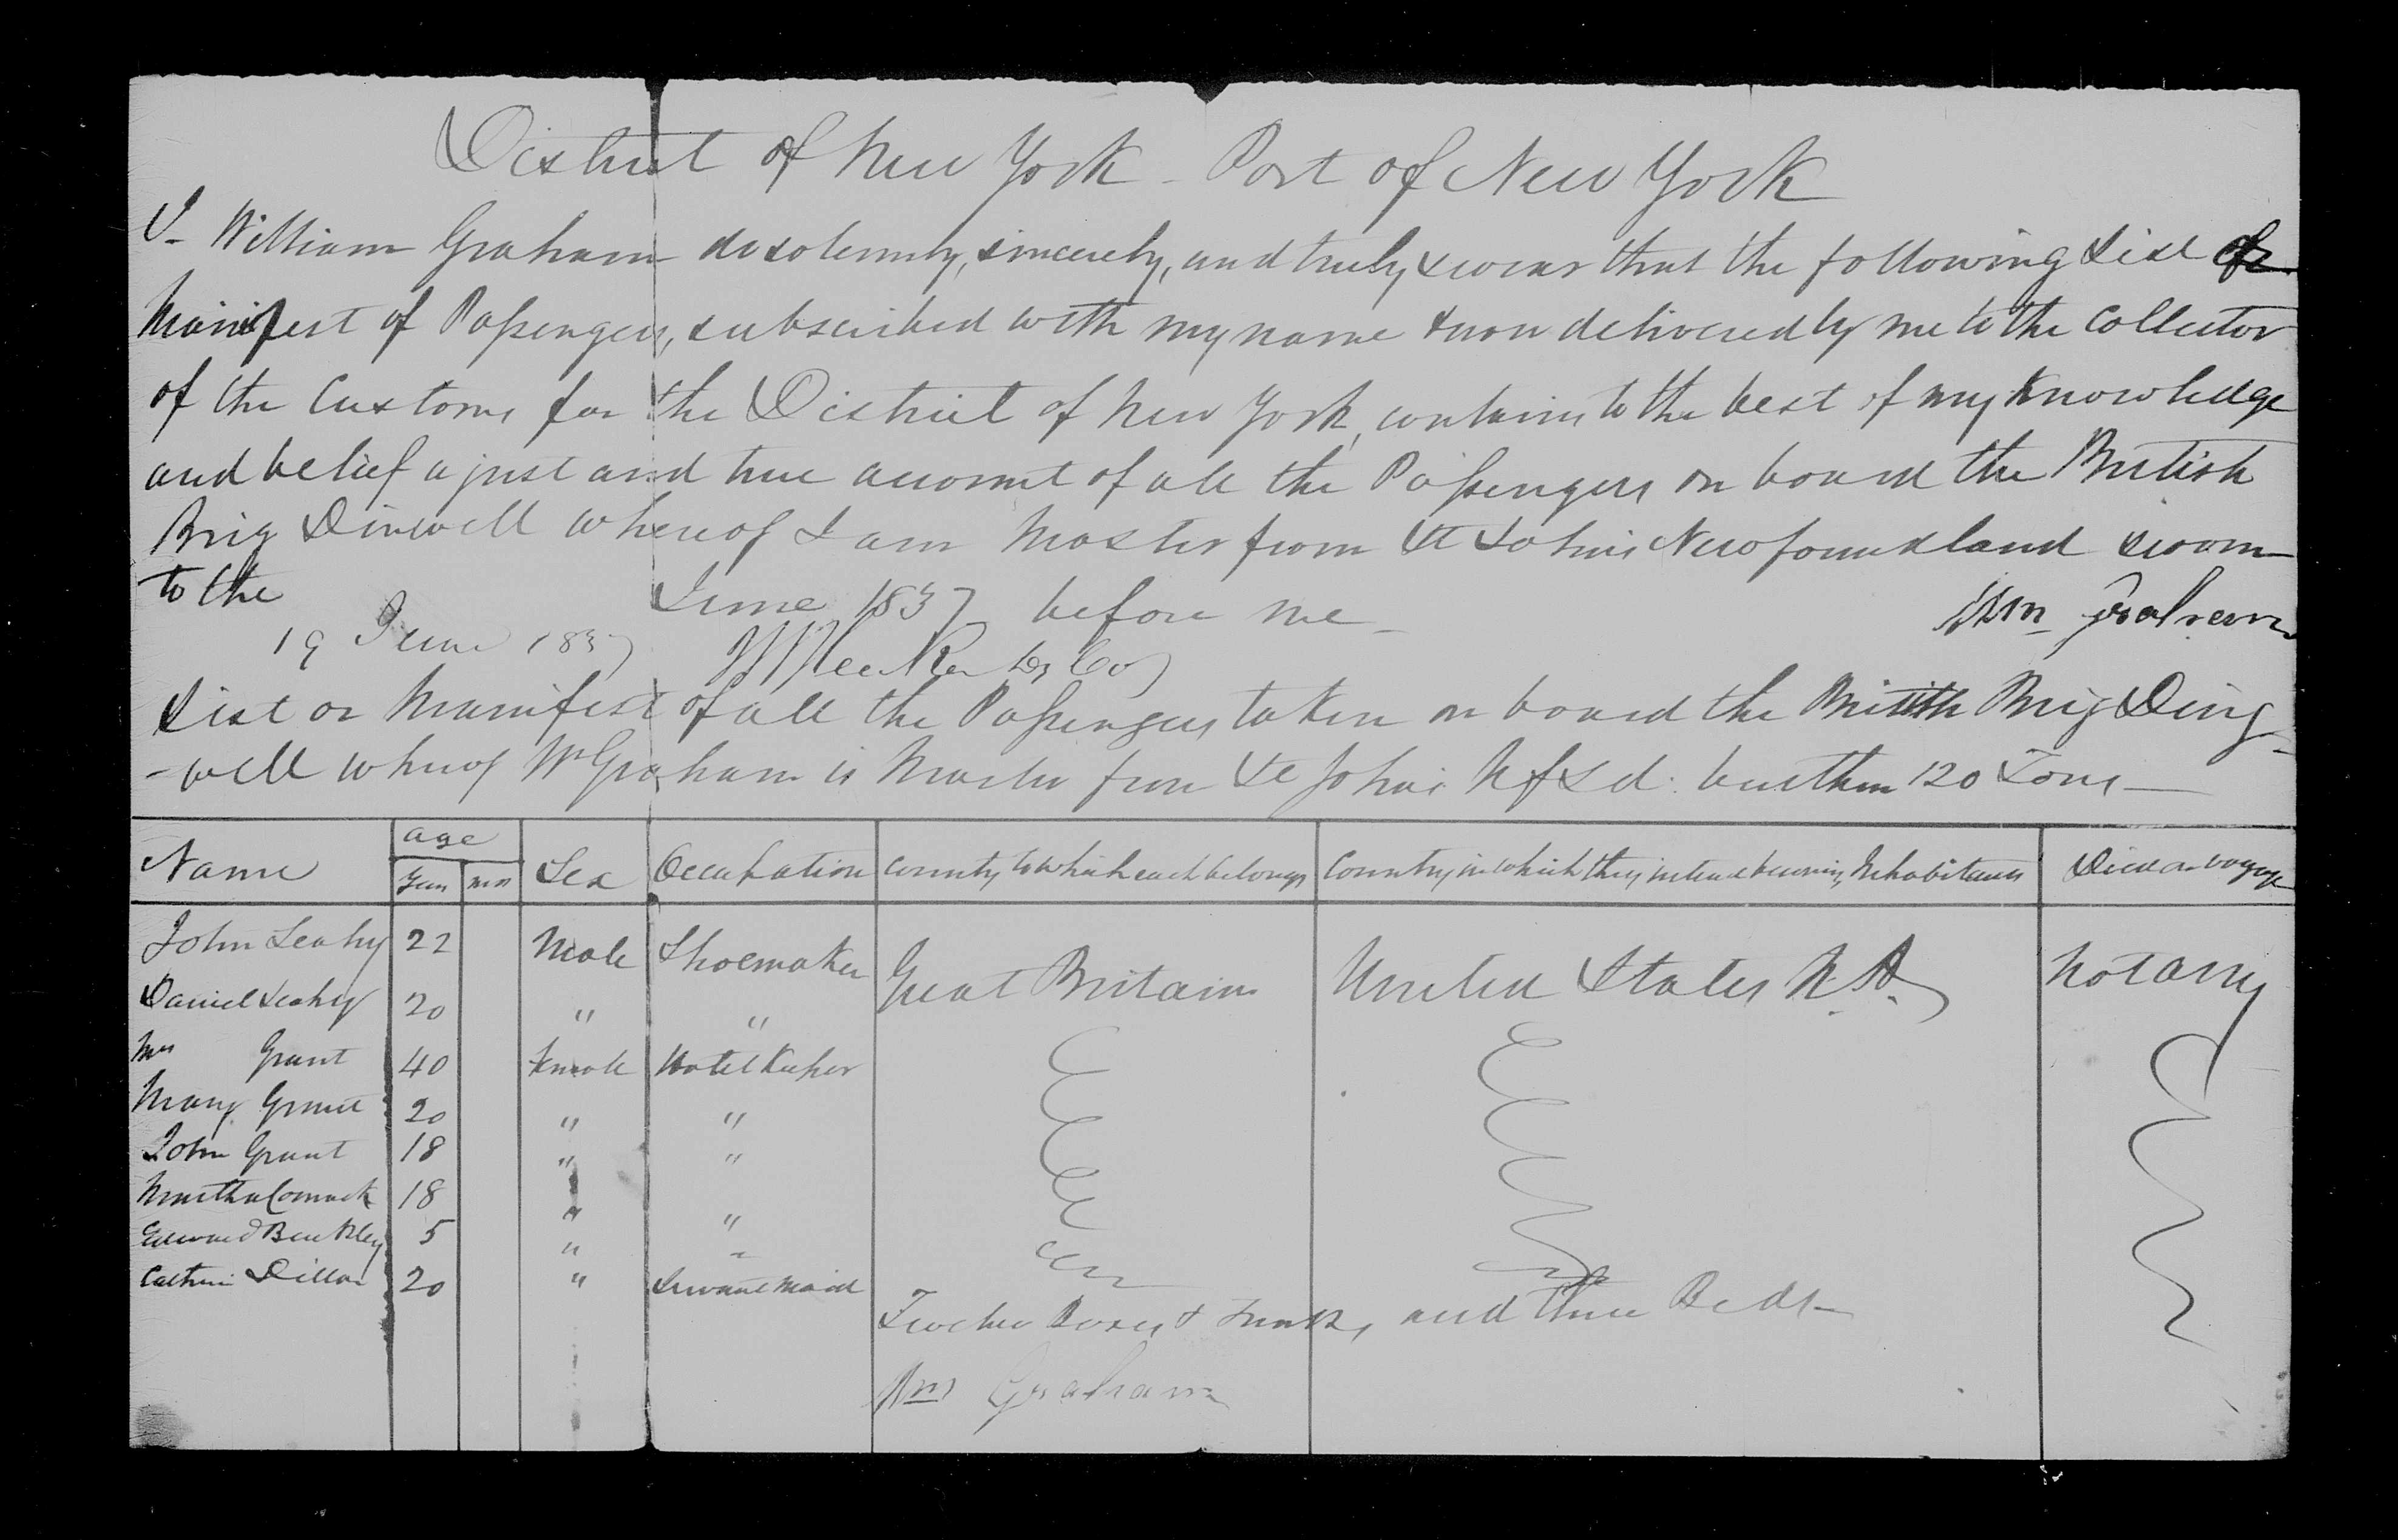 District of New York - Port of New York
I - William Graham do solemnly, sincerely, and truly swear that the following List or
Manifest of Passengers, subscribed with my name & now delivered by me to the Collector
of the Customs for the District of New York, contains to the best of my knowledge
and belief a just and true account of all the Passengers on board the British
Brig Dinwell whereof I am Master from St Johns Newfoundland sworn
to the June 1837 before me - Wm Graham
19 June 1837
List or Manifest of all the Passengers taken on board the British Brig Ding
-well whereof Wm Graham is Master from St Johns Nfld. burthen 120 Tons
Name age Years mos Sex Occupation Country to which each belongs Country in which they intend becoming Inhabitants Died on voyage
John Leahy 22 Male Shoemaker Great Britain United States N.A. not any
Daniel Leahy 20 " "
Mrs Grant 40 Female Hotel Keeper
Mary Grant 20 " "
John Grant 18 " "
Martha Comack 18 " "
Edward 5 " "
Catherine Dillon 20 " Servant Maid
Twelve Boxes & Trunks, and three Beds
Wm Graham